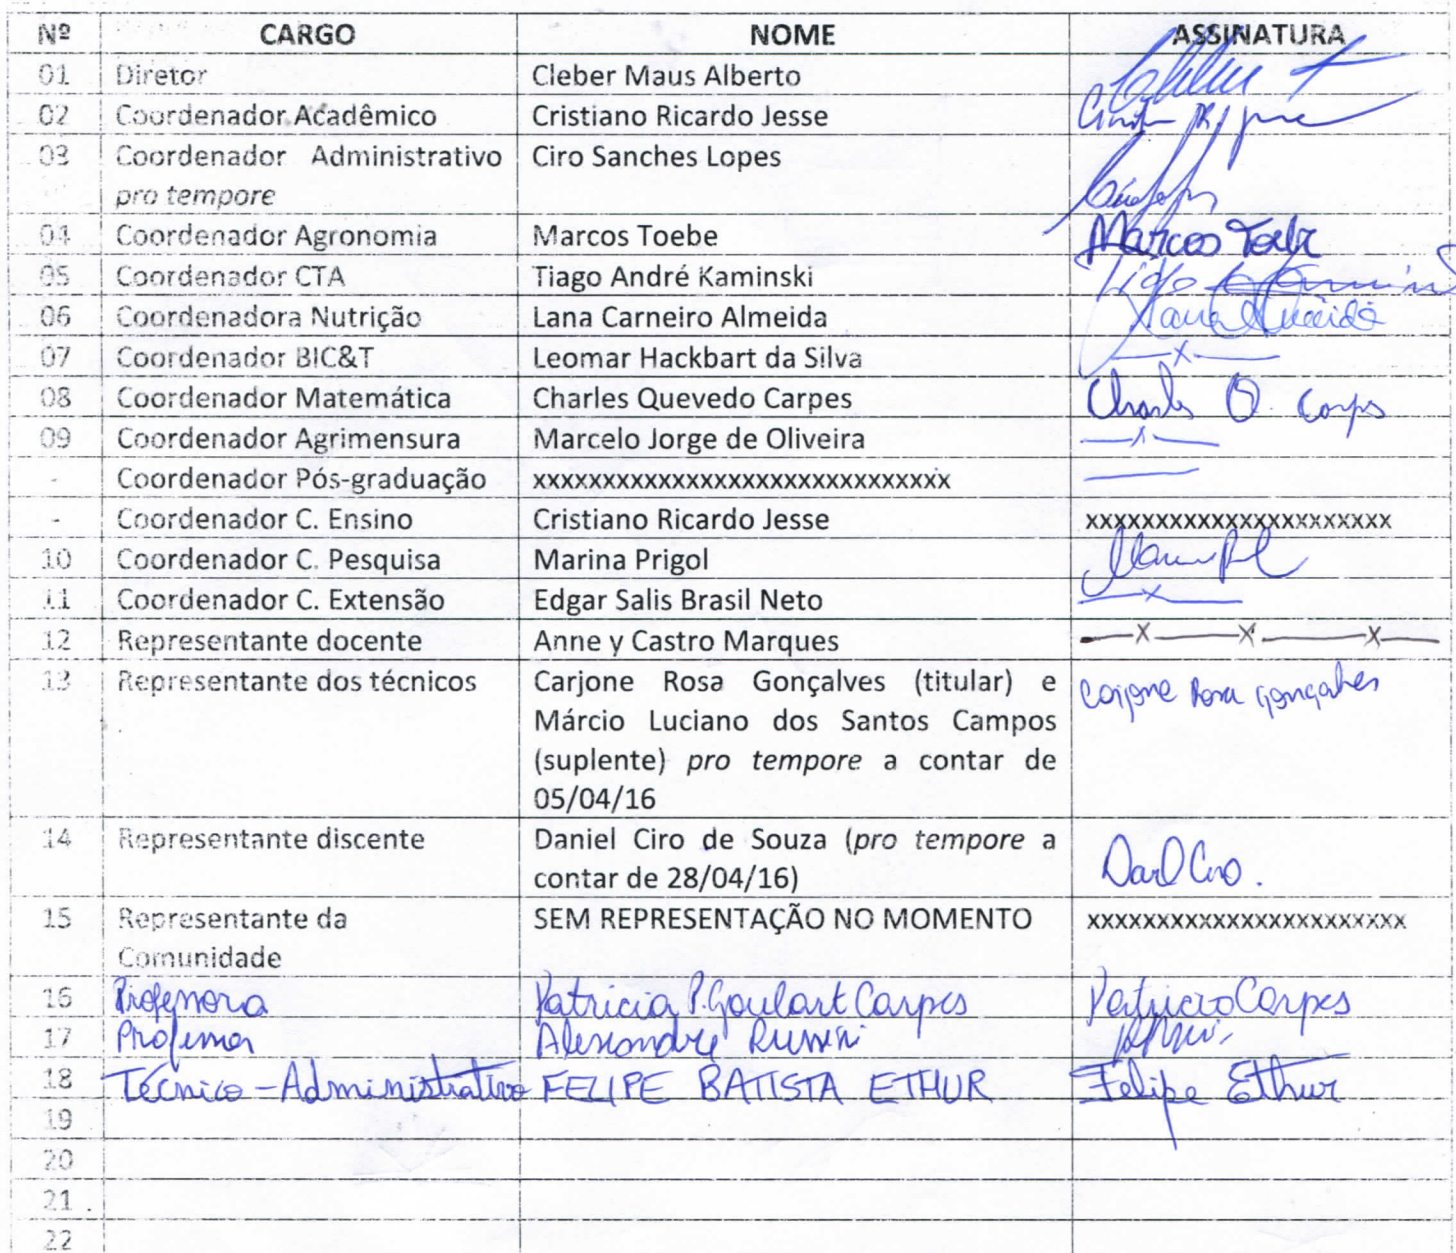 Nº CARGO NOME ASSINATURA
01 Diretor Cleber Maus Alberto
02 Coordenador Acadêmico Cristiano Ricardo Jesse
03 Coordenador Administrativo Ciro Sanches Lopes
pro tempore
04 Coordenador Agronomia Marcos Toebe Marcos Toebe
05 Coordenador CTA Tiago André Kaminski
06 Coordenadora Nutrição Lana Carneiro Almeida Lana Almeida
07 Coordenador BIC&T Leomar Hackbart da Silva —x—
08 Coordenador Matemática Charles Quevedo Carpes Charles Q. Carpes
09 Coordenador Agrimensura Marcelo Jorge de Oliveira —x—
- Coordenador Pós-graduação xxxxxxxxxxxxxxxxxxxxxxxxxxxxxx —
- Coordenador C. Ensino Cristiano Ricardo Jesse xxxxxxxxxxxxxxxxxxxxxxx
10 Coordenador C. Pesquisa Marina Prigol
11 Coordenador C. Extensão Edgar Salis Brasil Neto —x—
12 Representante docente Anne y Castro Marques —x—x—x—
13 Representante dos técnicos Carjone Rosa Gonçalves (titular) e Carjone Rosa Gonçalves
Márcio Luciano dos Santos Campos
(suplente) pro tempore a contar de
05/04/16
14 Representante discente Daniel Ciro de Souza (pro tempore a
contar de 28/04/16) Daniel Ciro.
15 Representante da SEM REPRESENTAÇÃO NO MOMENTO xxxxxxxxxxxxxxxxxxxxxxx
Comunidade
16 Professora Patricia P. Goulart Carpes Patricia Carpes
17 Professor Alexandre Russini
18 Técnico-Administrativo FELIPE BATISTA ETHUR Felipe Ethur
19
20
21
22